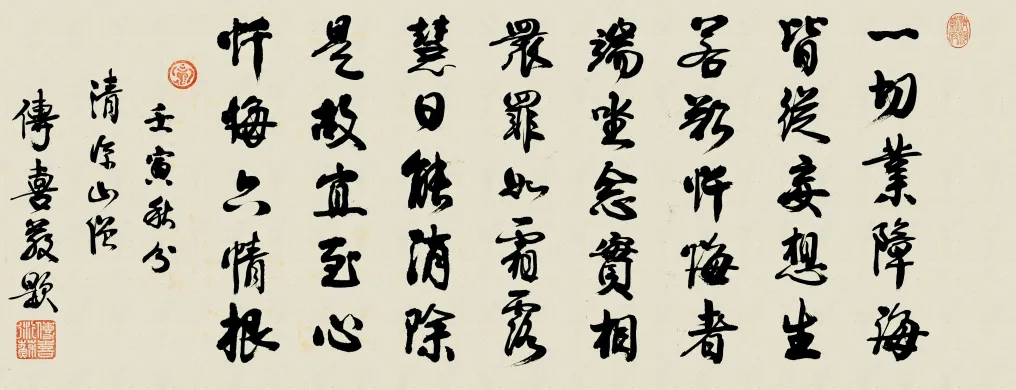 一切業障海
皆從妄想生
若欲懺悔者
端坐念實相
眾罪如霜露
慧日能消除
是故宜至心
懺悔六情根
壬寅秋分
清凉山僧
傳喜敬題